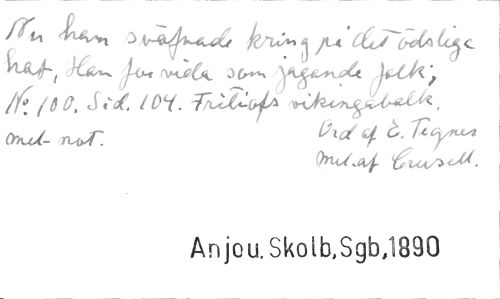 Nu han sväfvade kring på det ödsliga
haf, Han for vida som jagande falk;
No. 100. Sid. 104. Fritiofs vikingabalk.
Ord af E. Tegner
mel-not.
Mel. af Crusell.
Anjou. Skolb, Sgb, 1890